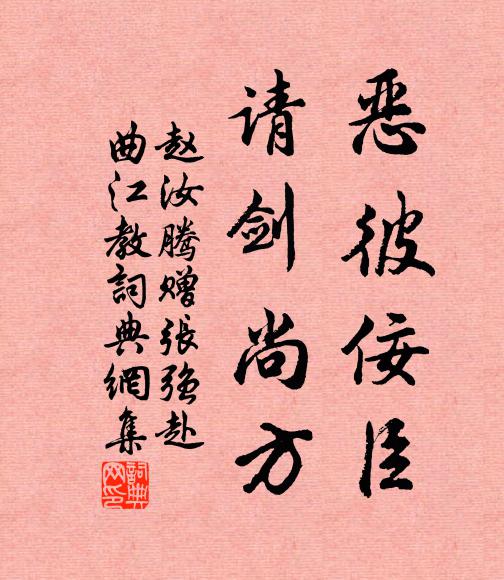 恶彼佞臣
请剑尚方
赵汝腾赠张强赴
曲江教詞典網集
詞典网印